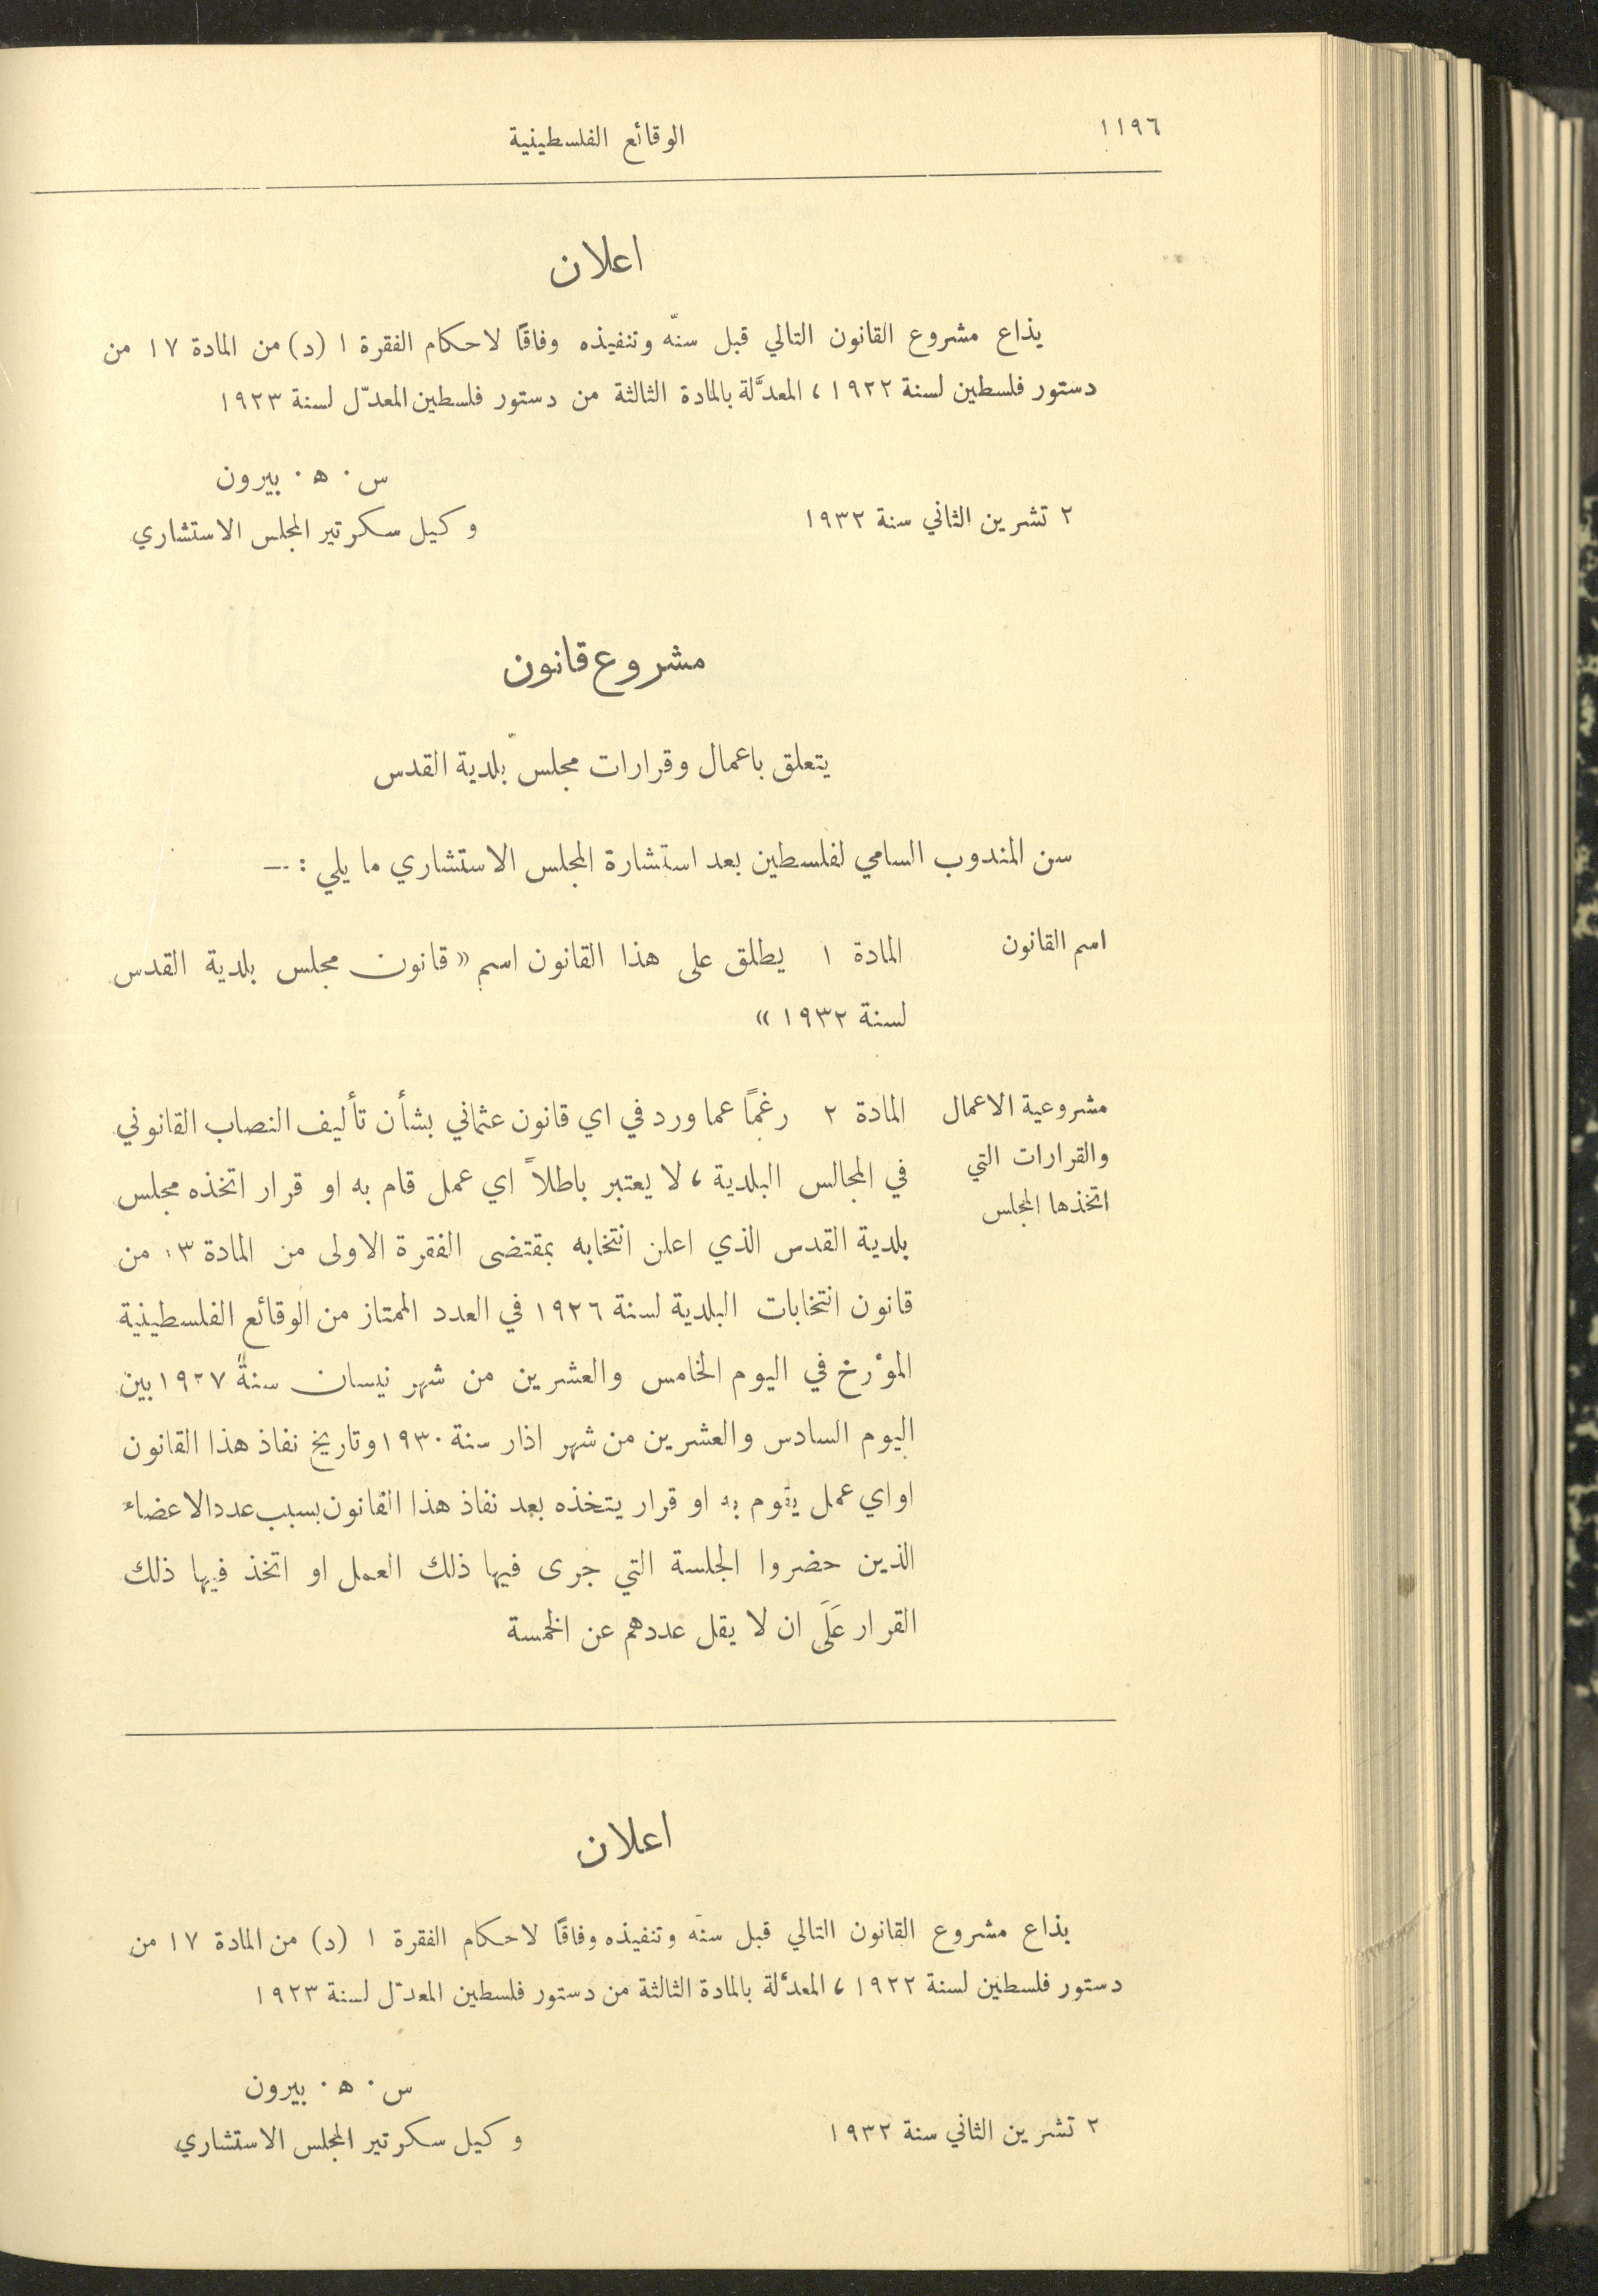 ١١٩٦
الوقائع الفلسطينية
اعلان
يذاع مشروع القانون التالي قبل سنّه وتنفيذه وفاقًا لاحكام الفقرة ١ (د) من المادة ١٧ من
دستور فلسطين لسنة ١٩٢٢، المعدَّلة بالمادة الثالثة من دستور فلسطين المعدّل لسنة ١٩٢٣
س. ه. بيرون
٢ تشرين الثاني سنة ١٩٣٢
وكيل سكرتير المجلس الاستشاري
مشروع قانون
يتعلق باعمال وقرارات مجلس بلدية القدس
سن المندوب السامي لفلسطين بعد استشارة المجلس الاستشاري ما يلي : —
اسم القانون
المادة ١ يطلق على هذا القانون اسم « قانون مجلس بلدية القدس
لسنة ١٩٣٢ »
مشروعية الاعمال
والقرارات التي
اتخذها المجلس
المادة ٢ رغمًا عما ورد في اي قانون عثماني بشأن تأليف النصاب القانوني
في المجالس البلدية، لا يعتبر باطلاً اي عمل قام به او قرار اتخذه مجلس
بلدية القدس الذي اعلن انتخابه بمقتضى الفقرة الاولى من المادة من
قانون انتخابات البلدية لسنة ١٩٢٦ في العدد الممتاز من الوقائع الفلسطينية
المؤرخ في اليوم الخامس والعشرين من شهر نيسان سنة ١٩٢٧ بين
اليوم السادس والعشرين من شهر اذار سنة ١٩٣٠ وتاريخ نفاذ هذا القانون
او اي عمل يقوم به او قرار يتخذه بعد نفاذ هذا القانون بسبب عدد الاعضاء
الذين حضروا الجلسة التي جرى فيها ذلك العمل او اتخذ فيها ذلك
القرار عَلَى ان لا يقل عددهم عن الخمسة
اعلان
يذاع مشروع القانون التالي قبل سنّه وتنفيذه وفاقًا لاحكام الفقرة ١ (د) من المادة ١٧ من
دستور فلسطين لسنة ١٩٢٢، المعدَّلة بالمادة الثالثة من دستور فلسطين المعدّل لسنة ١٩٢٣
س. ه. بيرون
٢ تشرين الثاني سنة ١٩٣٢
وكيل سكرتير المجلس الاستشاري